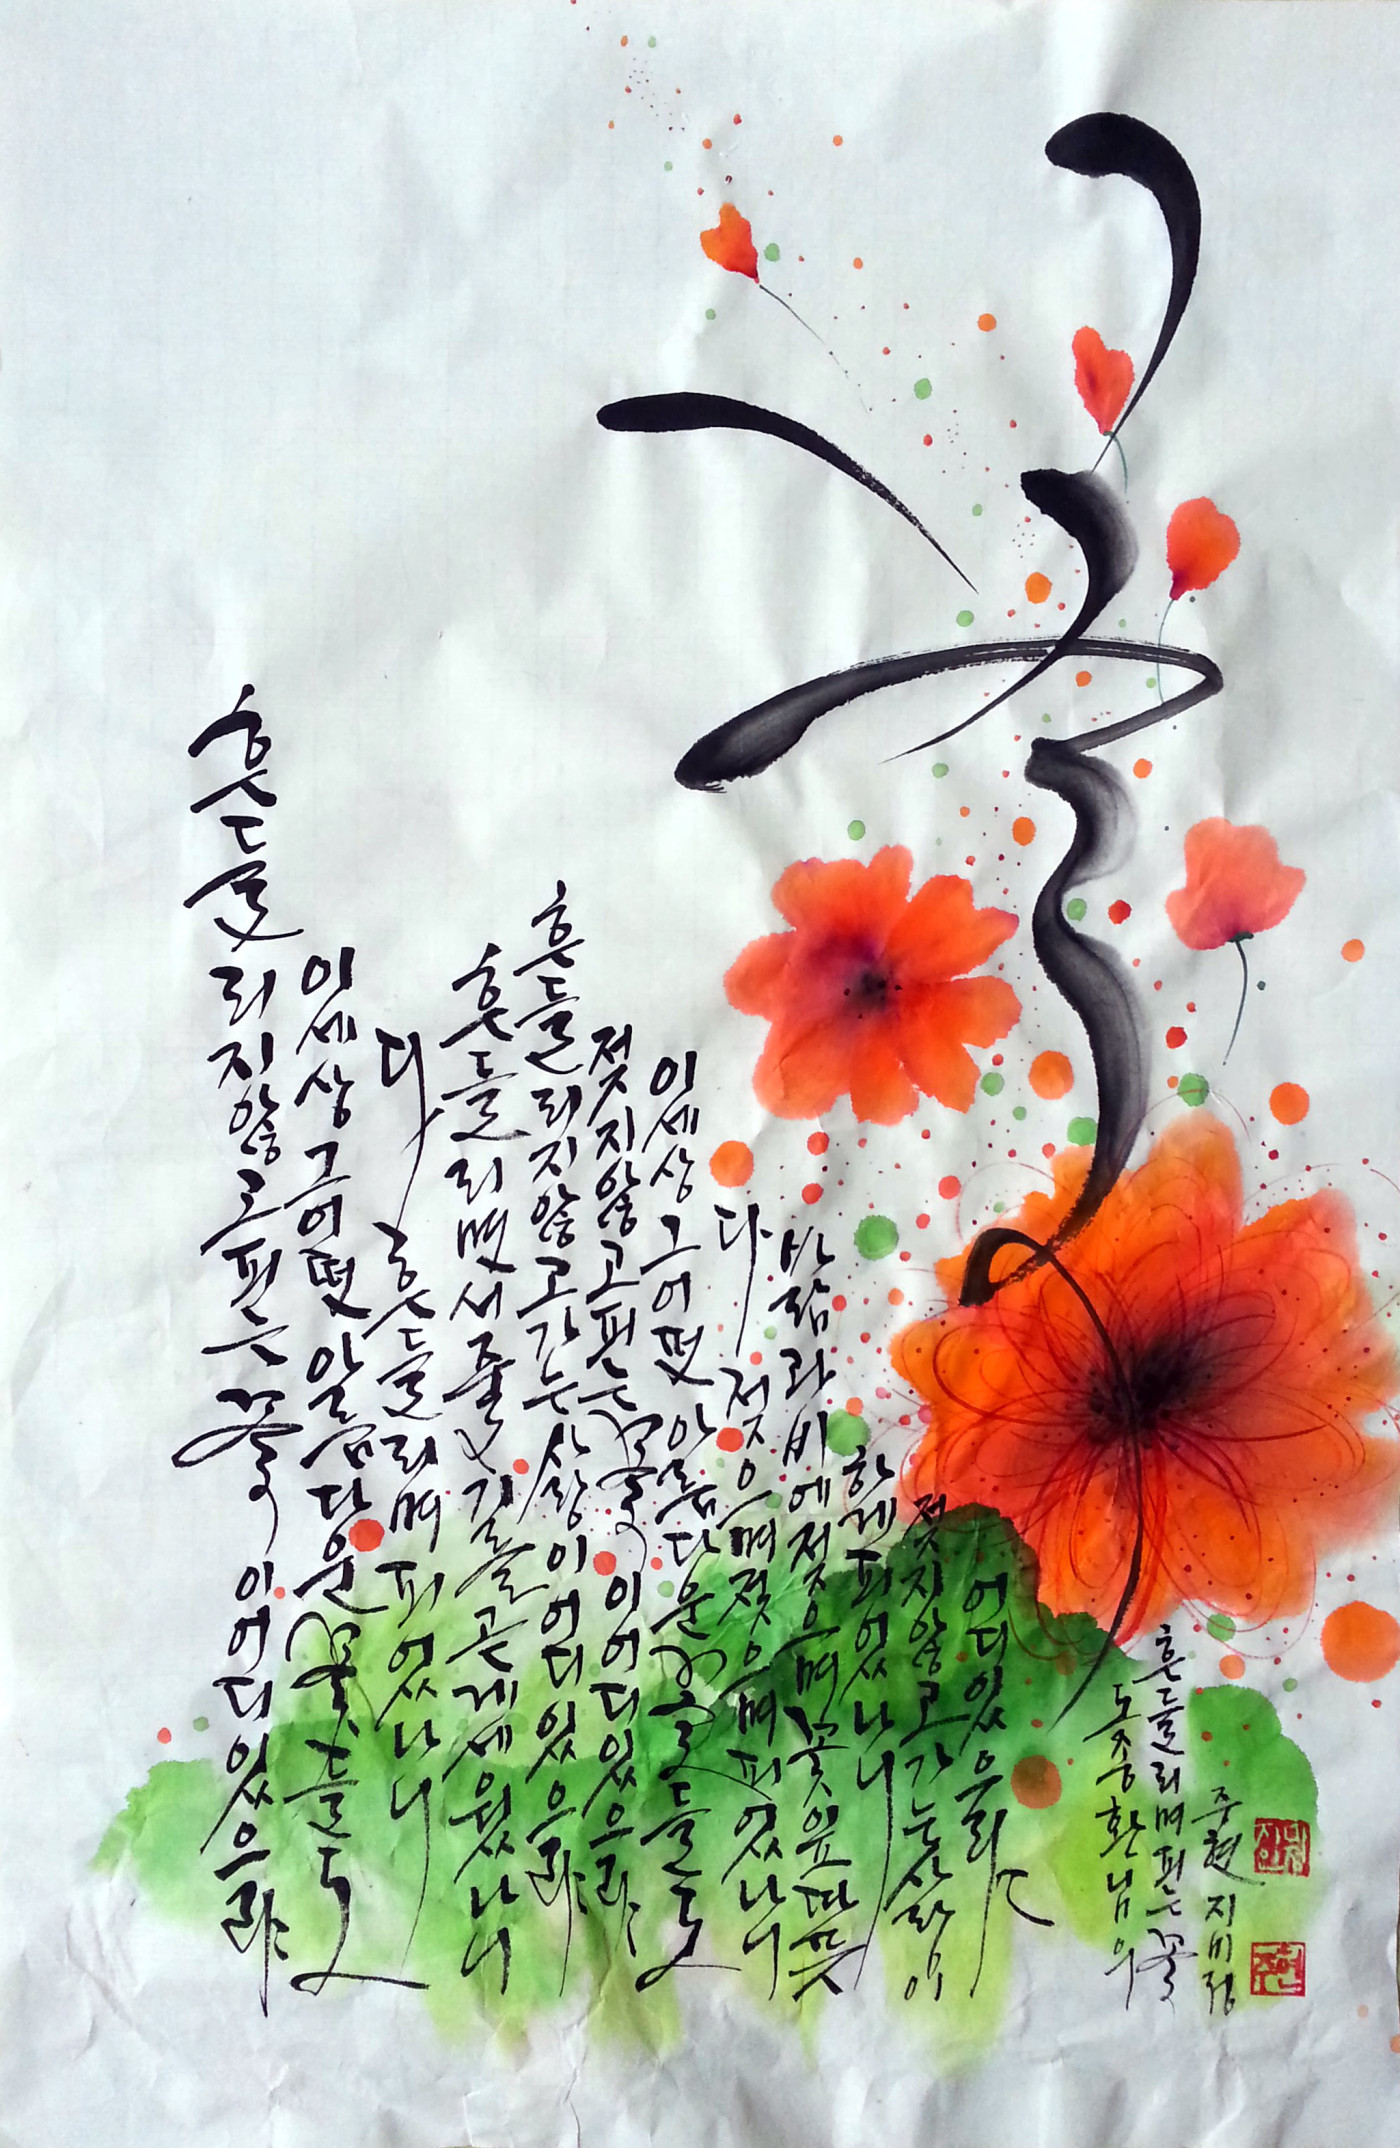 꽃
흔들리지 않고 피는 꽃이 어디 있으랴
이 세상 그 어떤 아름다운 꽃들도
다 흔들리며 피었나니
흔들리면서 줄기를 곧게 세웠나니
흔들리지 않고 가는 사랑이 어디 있으랴
젖지 않고 피는 꽃이 어디 있으랴
이 세상 그 어떤 아름다운 꽃들도
다 젖으며 젖으며 피었나니
바람과 비에 젖으며 꽃잎 따뜻
하게 피었나니
젖지 않고 가는 삶이
어디 있으랴
도종환님의
흔들리며 피는 꽃
중현
중현